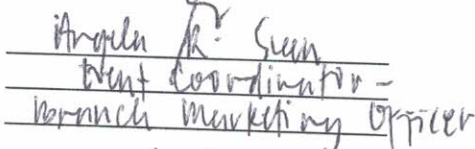 Angela R.
Event Coordinator -
Branch Marketing Officer